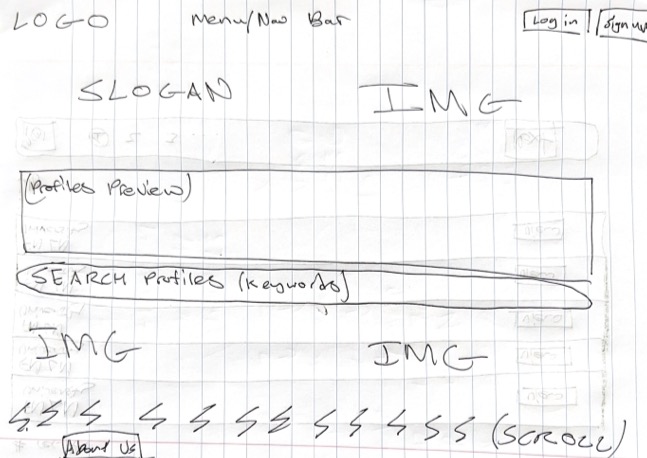 LOGO Menu/Nav Bar Log in Sign up
SLOGAN IMG
(Profiles Preview)
SEARCH Profiles (Keywords)
IMG IMG
(SCROLL)
About Us